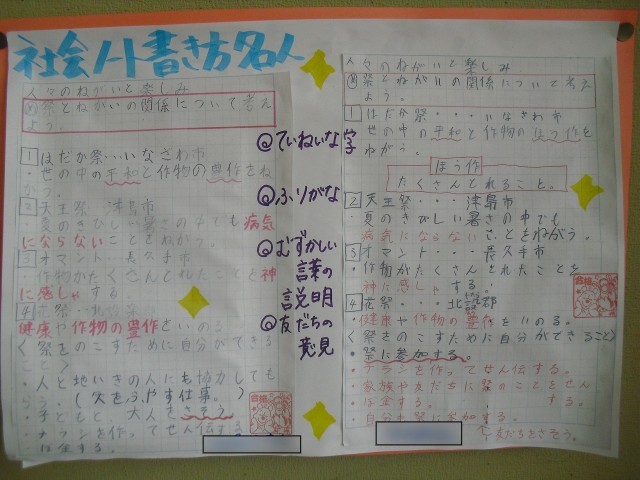 社会ノート書き方名人
人々のねがいと楽しみ
め祭とねがいの関係について考え
よう。
1 はだか祭・・・いなざわ市
・世の中の平和と作物の豊作をね
がう。
2 天王祭・・・津島市
・夏のきびしい暑さの中でも病気
にならないことをねがう。
3 オマント・・・長久手市
・作物がたくさんとれたことを神
に感しゃする。
4 花祭・・・北設楽郡
健康や作物の豊作をいのる。
〈祭をのこすために自分ができる
こと〉
・人と地いきの人にも協力しても
らう。(火をふやす仕事。)
・子どもと、大人をさそう。
・チラシを作ってせん伝する。
◎ていねいな字
◎ふりがな
◎むずかしい
言葉の
説明
◎友だちの
意見
人々のねがいと楽しみ
め祭とねがいの関係について考え
よう。
1 はだか祭・・・いなざわ市
世の中の平和と作物のほう作を
ねがう。
ほう作
たくさんとれること。
2 天王祭・・・津島市
・夏のきびしい暑さの中でも
病気にならないことをねがう。
3 オマント・・・長久手市
・作物がたくさんとれたことを
神に感しゃする。
4 花祭・・・北設楽郡
・健康や作物の豊作をいのる。
〈祭をのこすために自分ができること〉
・祭に参加する。
・チラシを作ってせん伝する。
・家族や友だちに祭のことをせん
・自分も祭に参加する。
友だちをさそう。